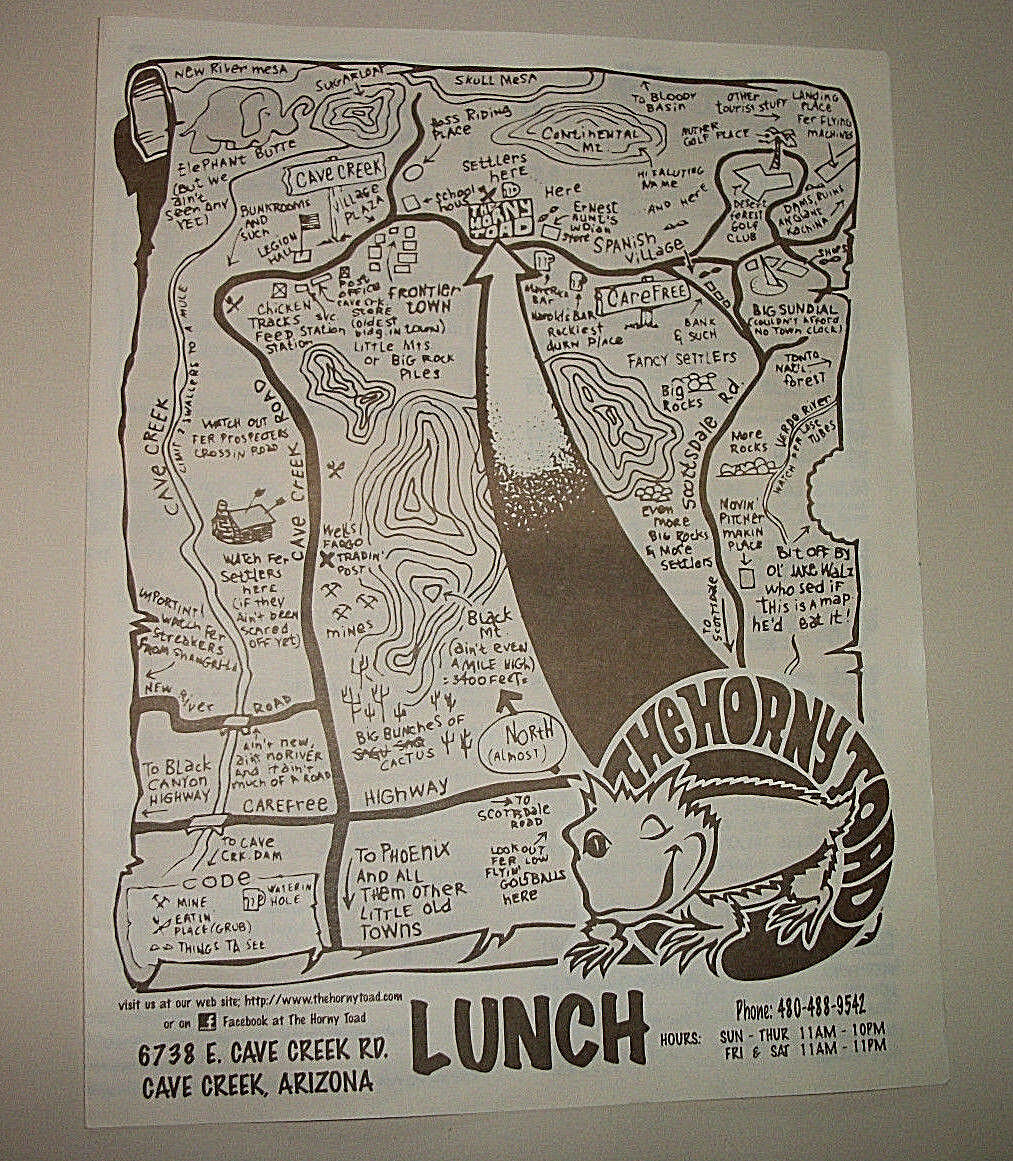 NEW RIVER MESA
SUGARLOAF
SKULL MESA
TO BLOODY
BASIN
OTHER
TOURIST STUFF
LANDING
PLACE
FER FLYING
MACHINES
ELEPHANT BUTTE
(BUT WE
AIN'T
SEEN ANY
YET)
HOSS RIDING
PLACE
CONTINENTAL
MT.
NUTHER
GOLF PLACE
HIFALUTING
NAME
CAVE CREEK
VILLAGE
PLAZA
SETTLERS
HERE
SCHOOL
HOUSE
THE
HORNY
TOAD
HERE
AND HERE
ERNEST
AUNT'S
INDIAN
STORE
SPANISH
VILLAGE
DESERT
FOREST
GOLF
CLUB
DAMS, RUINS
ANCIANT
KACHINA
SHOPS
BUNKROOMS
AND
SUCH
LEGION
HALL
POST
OFFICE
CAVE CRK.
STORE
(OLDEST
BLDG. IN TOWN)
FRONTIER
TOWN
CHICKEN
TRACKS
FEED
STATION
SVC.
STATION
LITTLE MTS.
OR BIG ROCK
PILES
MAVERICK
BAR
HAROLDS BAR
ROCKIEST
DURN PLACE
CAREFREE
BANK
& SUCH
BIG SUNDIAL
(COULDN'T AFFORD
NO TOWN CLOCK)
FANCY SETTLERS
BIG
ROCKS
TONTO
NAT'L
FOREST
SCOTTSDALE RD
MORE
ROCKS
VERDE RIVER
WATCH FER LOSE
TUBES
CAVE CREEK
LIMIT 2 SWALLERS TO A MULE
WATCH OUT
FER PROSPECTERS
CROSSIN ROAD
CAVE CREEK ROAD
WATCH FER
SETTLERS
HERE
(IF THEY
AIN'T BEEN
SCARED
OFF YET)
WELLS
FARGO
TRADIN'
POST
MINES
EVEN
MORE
BIG ROCKS
& MORE
SETTLERS
MOVIN'
PITCHER
MAKIN
PLACE
BIT OFF BY
OL' JAKE WALZ
WHO SED IF
THIS IS A MAP
HE'D EAT IT!
TO
SCOTTSDALE
IMPORTINT!
WATCH FER
STREAKERS
FROM SHANGRI-LA
BLACK
MT.
(AIN'T EVEN
A MILE HIGH)
=3400 FEET=
NEW RIVER ROAD
AIN'T NEW,
AIN'T NO RIVER
AND IT AIN'T
MUCH OF A ROAD
BIG BUNCHES OF
CACTUS
NORTH
(ALMOST)
TO BLACK
CANYON
HIGHWAY
CAREFREE HIGHWAY
TO
SCOTTSDALE
ROAD
TO CAVE
CRK. DAM
LOOK OUT
FER LOW
FLYIN'
GOLFBALLS
HERE
TO PHOENIX
AND ALL
THEM OTHER
LITTLE OLD
TOWNS
CODE
MINE
WATERIN
HOLE
EATIN'
PLACE (GRUB)
THINGS TA SEE
THE HORNY TOAD
visit us at our web site; http://www.thehornytoad.com
or on f Facebook at The Horny Toad
6738 E. CAVE CREEK RD.
CAVE CREEK, ARIZONA
LUNCH
Phone: 480-488-9542
HOURS: SUN - THUR 11AM - 10PM
FRI & SAT 11AM - 11PM